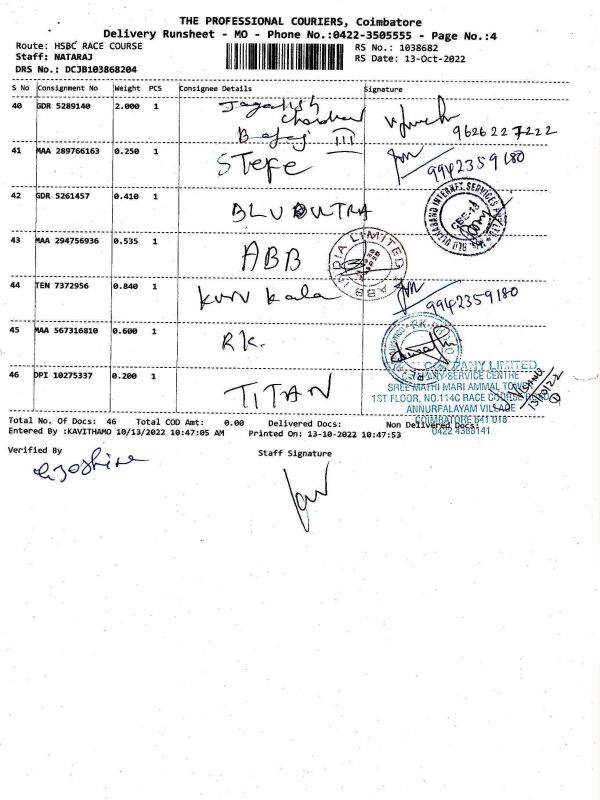 THE PROFESSIONAL COURIERS, Coimbatore
Delivery Runsheet - MO - Phone No.:0422-3505555 - Page No.:4
Route: HSBC RACE COURSE
RS No.: 1038682
Staff: NATARAJ
RS Date: 13-Oct-2022
DRS No.: DCJB103868204
S No Consignment No Weight PCS Consignee Details Signature
40 GDR 5289140 2.000 1 Jagadish
Bajaj III
9626227222
41 MAA 289766163 0.250 1 STEFE
9942359180
42 GDR 5261457 0.410 1
BLU DUTRA
43 MAA 294756936 0.535 1 ABB
44 TEN 7372956 0.840 1 Kala
9942359180
45 MAA 567316810 0.600 1 RK.
46 DPI 10275337 0.200 1 TITAN
COMPANY LIMITED
SERVICE CENTRE
SREE MATHI MARI AMMAL TOWER
1ST FLOOR, NO.114C RACE COURSE ROAD
ANNURFALAYAM VILLAGE
COIMBATORE 641 018
0422 4388141
Total No. Of Docs: 46 Total COD Amt: 0.00 Delivered Docs: Non Delivered Docs:
Entered By :KAVITHAMO 10/13/2022 10:47:05 AM Printed On: 13-10-2022 10:47:53
Verified By
Staff Signature